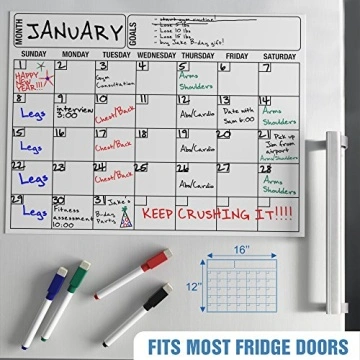 MONTH JANUARY GOALS
start gym routine!
Lose 5 lbs
Lose 10 lbs
Lose 15 lbs
buy Jake B-day gift!
SUNDAY MONDAY TUESDAY WEDNESDAY THURSDAY FRIDAY SATURDAY
1 2 3 4 5 6 7
HAPPY NEW YEAR!!!
Gym Consultation
Arms Shoulders
8 9 10 11 12 13 14
Legs
interview 3:00
Chest/Back
Abs/Cardio
Date with Sam 6:00
Arms Shoulders
15 16 17 18 19 20 21
Legs
Chest/Back
Abs/Cardio
Pick up Jim from airport
Arms/Shoulders
22 23 24 25 26 27 28
Legs
Chest/Back
Abs/Cardio
Arms/Shoulders
29 30 31
Legs
Fitness assessment 10:00
Jake's B-day Party
KEEP CRUSHING IT!!!!
16"
12"
FITS MOST FRIDGE DOORS